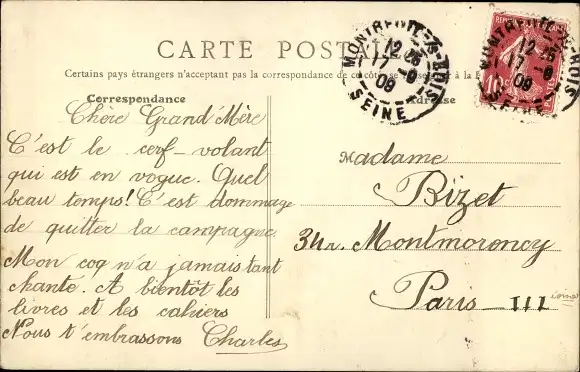 CARTE POSTALE
Certains pays étrangers n'acceptent pas la correspondance de ce côté
Correspondance
Adresse
Chère Grand'Mère
C'est le cerf-volant
qui est en vogue. Quel
beau temps! C'est dommage
de quitter la campagne
Mon coq n'a jamais tant
chanté. A bientôt les
livres et les cahiers
Nous t'embrassons Charles
Madame
Bizet
34 r. Montmorency
Paris-III
MONTREUIL-S-BOIS
12 25
17 -9
09
SEINE
MONTREUIL-S-BOIS
12 25
17 -9
09
10